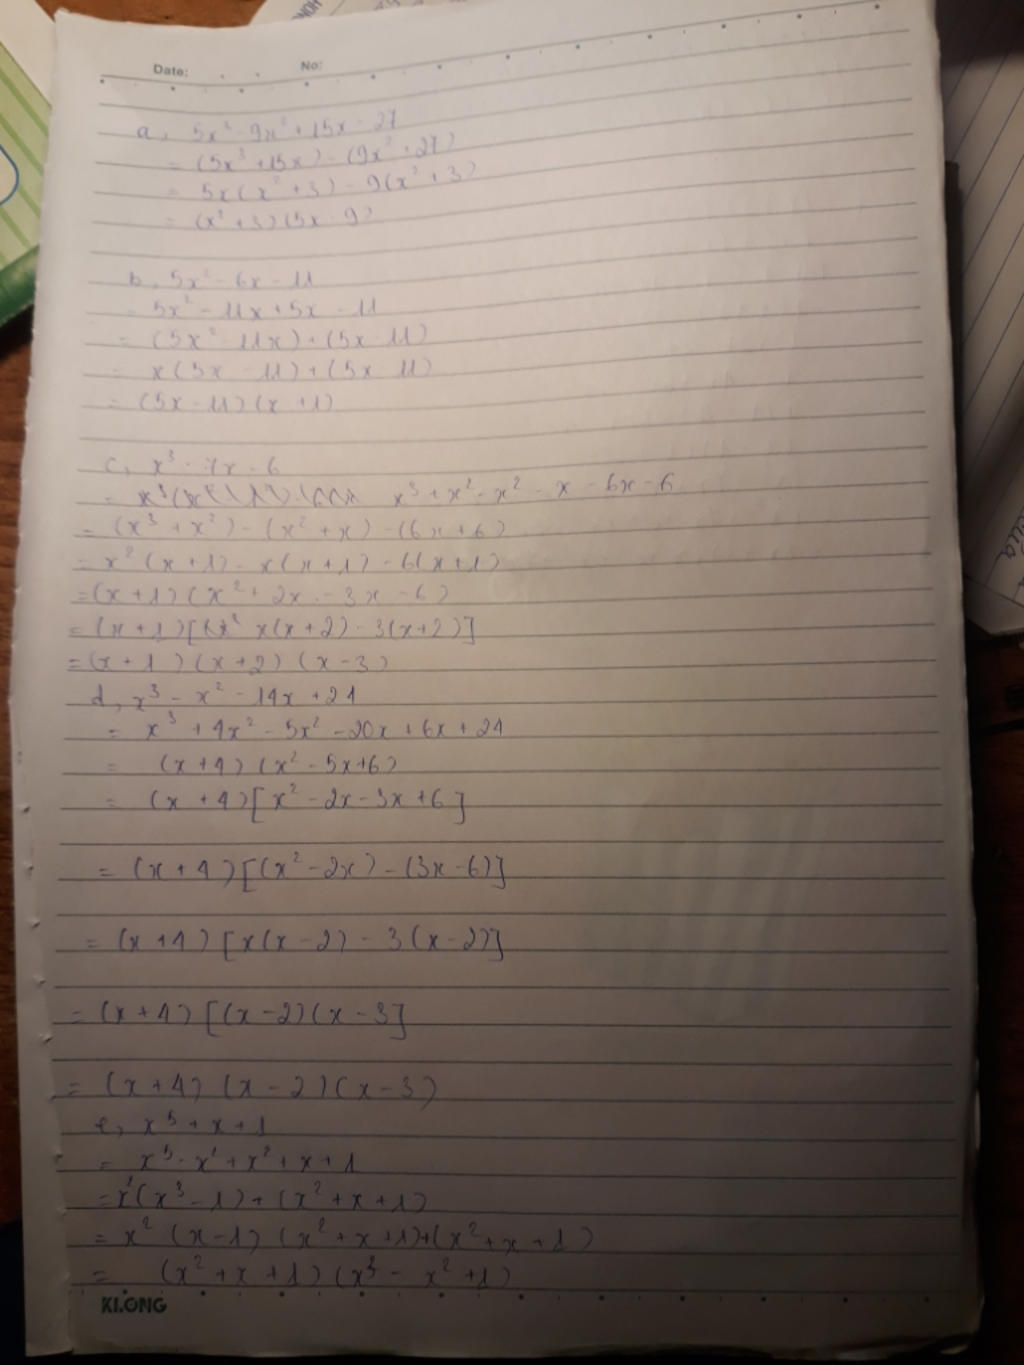 Date: No:
a, 5x³ - 9x² + 15x - 27
= (5x³ + 15x) - (9x² + 27)
= 5x(x² + 3) - 9(x² + 3)
= (x² + 3)(5x - 9)
b, 5x² - 6x - 11
= 5x² - 11x + 5x - 11
= (5x² - 11x) + (5x - 11)
= x(5x - 11) + (5x - 11)
= (5x - 11)(x + 1)
c, x³ - 7x - 6
= x³ + x² - x² - x - 6x - 6
= (x³ + x²) - (x² + x) - (6x + 6)
= x²(x + 1) - x(x + 1) - 6(x + 1)
= (x + 1)(x² + 2x - 3x - 6)
= (x + 1)[x(x + 2) - 3(x + 2)]
= (x + 1)(x + 2)(x - 3)
d, x³ - x² - 14x + 24
= x³ + 4x² - 5x² - 20x + 6x + 24
= (x + 4)(x² - 5x + 6)
= (x + 4)[x² - 2x - 3x + 6]
= (x + 4)[(x² - 2x) - (3x - 6)]
= (x + 4)[x(x - 2) - 3(x - 2)]
= (x + 4)[(x - 2)(x - 3]
= (x + 4)(x - 2)(x - 3)
e, x⁵ + x + 1
= x⁵ - x² + x² + x + 1
= x²(x³ - 1) + (x² + x + 1)
= x²(x - 1)(x² + x + 1) + (x² + x + 1)
= (x² + x + 1)(x³ - x² + 1)
KLONG